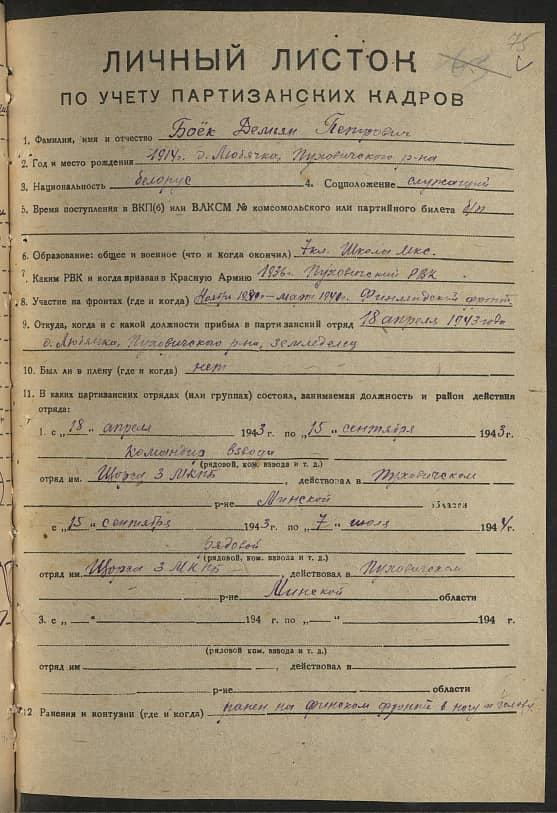 75
63
ЛИЧНЫЙ ЛИСТОК
ПО УЧЕТУ ПАРТИЗАНСКИХ КАДРОВ
1. Фамилия, имя и отчество Боёк Демьян Петрович
2. Год и место рождения 1914г. д. Любячка, Пуховичского р-на
3. Национальность белорус 4. Соцположение служащий
5. Время поступления в ВКП(б) или ВЛКСМ № комсомольского или партийного билета б/п
6. Образование: общее и военное (что и когда окончил) 7кл. Школа
7. Каким РВК и когда призван в Красную Армию 1936г. Пуховичский РВК
8. Участие на фронтах (где и когда) Ноябрь март 1940г. Финляндский фронт
9. Откуда, когда и с какой должности прибыл в партизанский отряд 18 апреля 1943 года
д. Любячка, Пуховичского р-на, земледелец
10. Был ли в плену (где и когда) нет
11. В каких партизанских отрядах (или группах) состоял, занимаемая должность и район действия
отряда:
1. с „18“ апреля 1943 г. по „15“ сентября 1943 г.
Командир взвода
(рядовой, ком. взвода и т. д.)
отряд им. Щорса 3 МКПБ, действовал в Пуховичском
р-не Минской области
с „15“ сентября 1943 г. по „7“ июля 1944 г.
рядовой
(рядовой, ком. взвода и т. д.)
отряд им. Щорса 3 МКПБ, действовал в Пуховичском
р-не Минской области
3. с „ “ 194 г. по „ “ 194 г.
(рядовой, ком. взвода и т. д.)
отряд им , действовал в
р-не области
12 Ранения и контузии (где и когда) ранен на финском фронте в ногу и голову